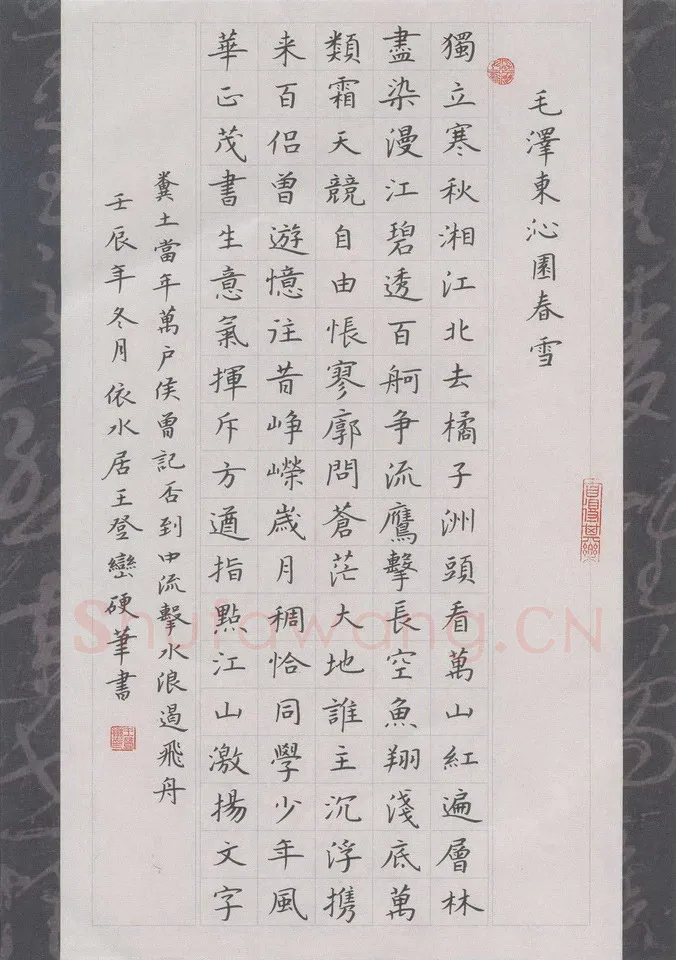 毛澤東沁園春雪
獨立寒秋湘江北去橘子洲頭看萬山紅遍層林
盡染漫江碧透百舸争流鷹擊長空魚翔淺底萬
類霜天競自由悵寥廓問蒼茫大地誰主沉浮携
来百侣曾遊憶往昔峥嶸歲月稠恰同學少年風
華正茂書生意氣揮斥方遒指點江山激揚文字
糞土當年萬户侯曾記否到中流擊水浪遏飛舟
壬辰年冬月依水居王登巒硬筆書
Shufawang.CN